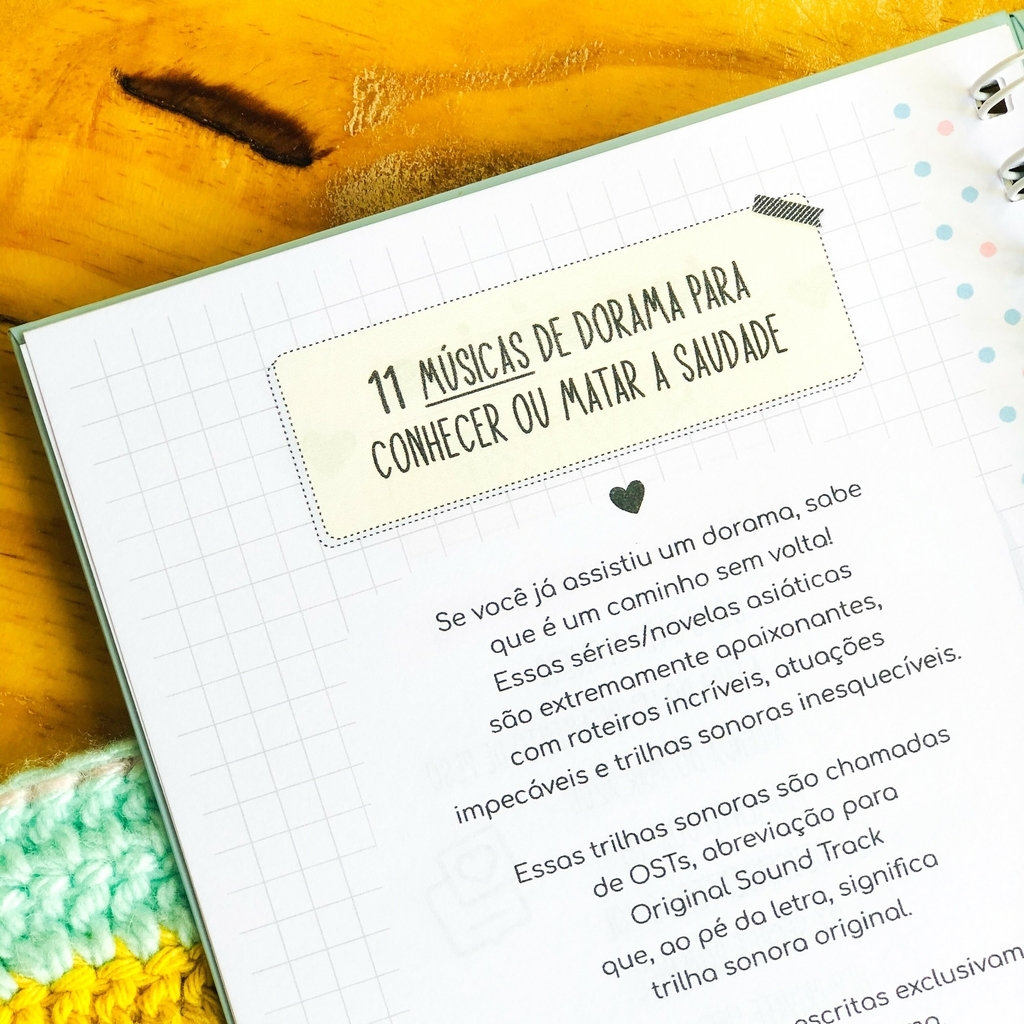 11 MÚSICAS DE DORAMA PARA
CONHECER OU MATAR A SAUDADE
Se você já assistiu um dorama, sabe
que é um caminho sem volta!
Essas séries/novelas asiáticas
são extremamente apaixonantes,
com roteiros incríveis, atuações
impecáveis e trilhas sonoras inesquecíveis.
Essas trilhas sonoras são chamadas
de OSTs, abreviação para
Original Sound Track
que, ao pé da letra, significa
trilha sonora original.
escritas exclusivam